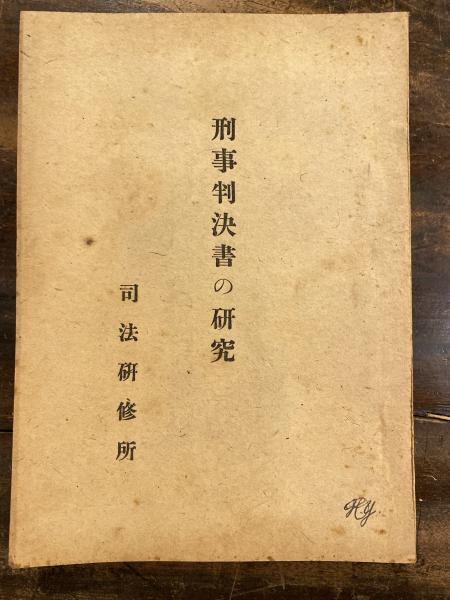 刑事判決書の研究
司法研修所
H.Y.